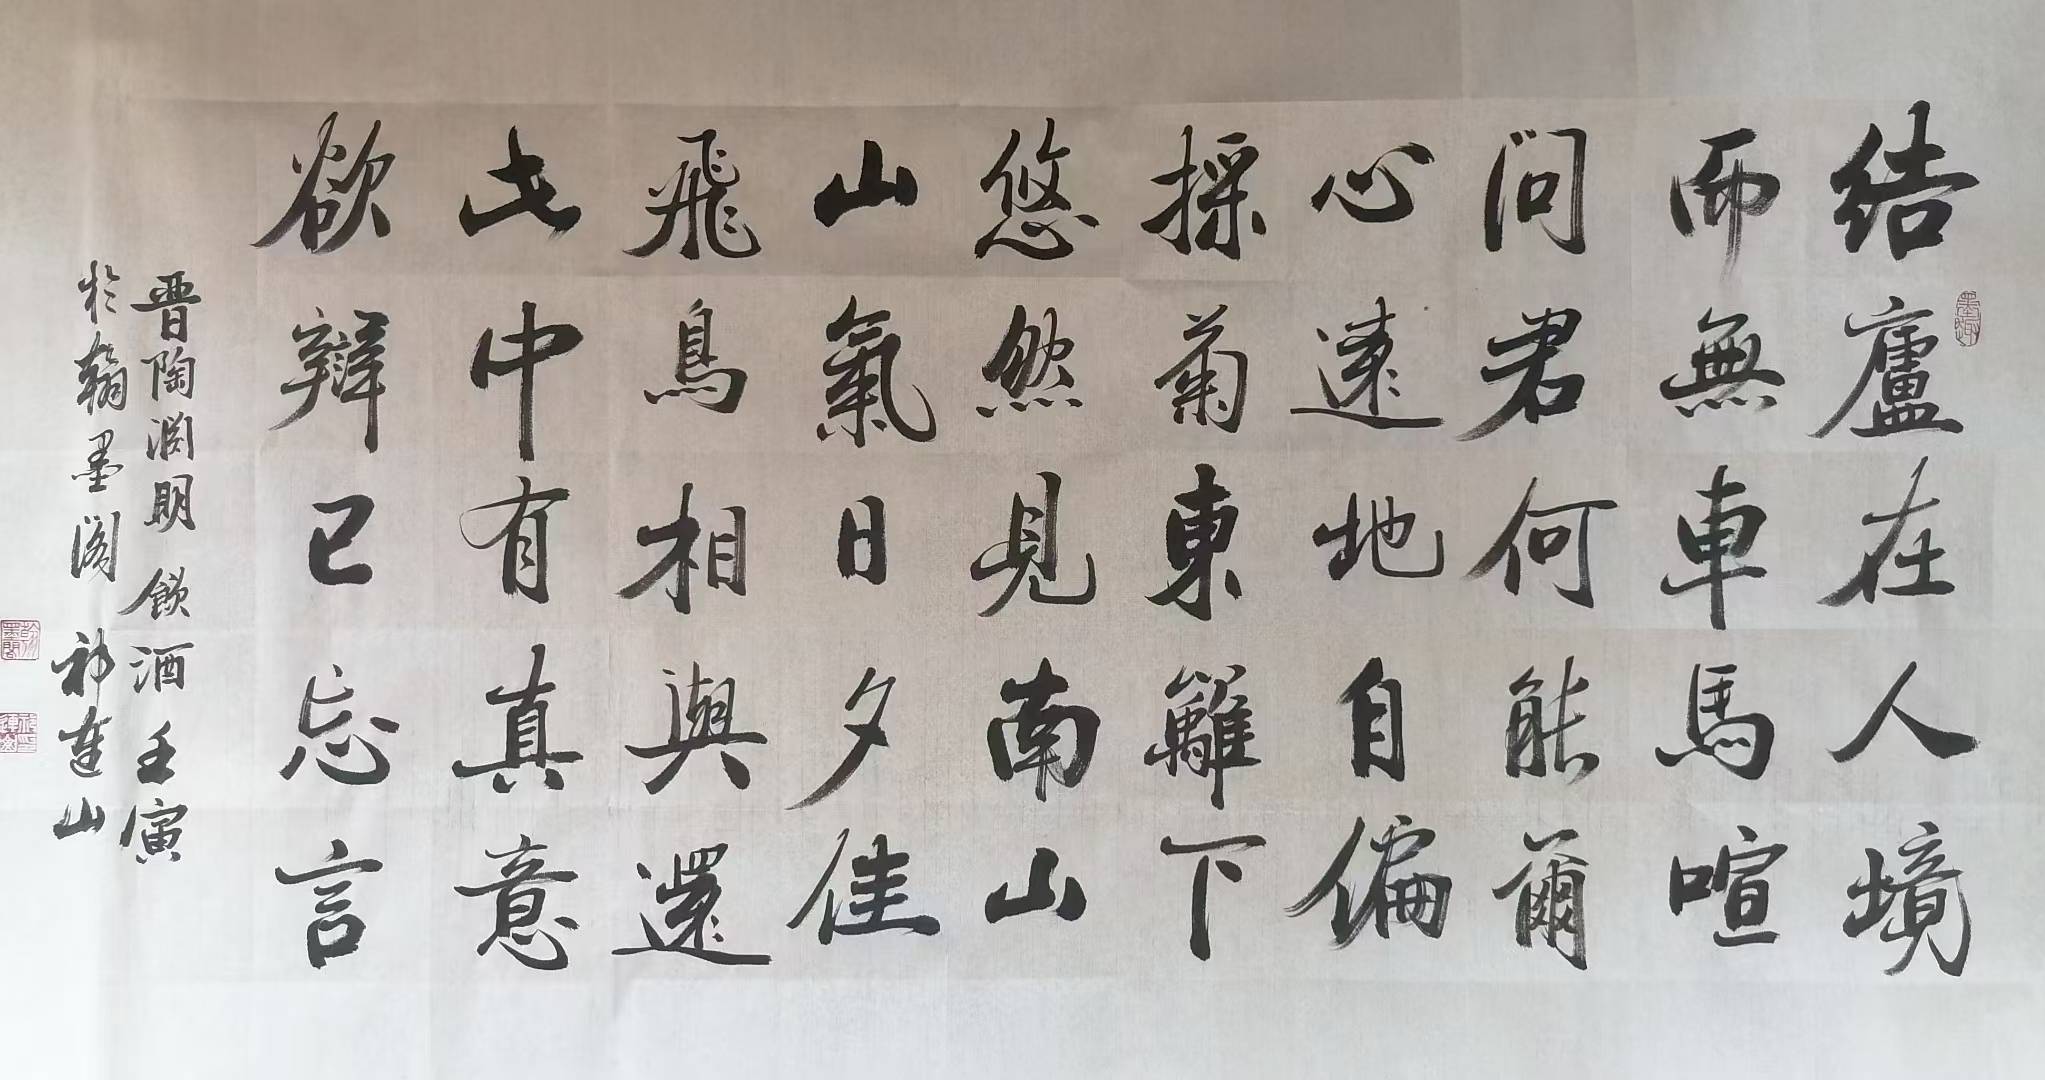 结廬在人境
而無車馬喧
问君何能爾
心遠地自偏
採菊東籬下
悠然見南山
山氣日夕佳
飛鳥相與還
此中有真意
欲辯已忘言
晋陶渊明飲酒壬寅
於翰墨阁祁蓮山
翰墨閣